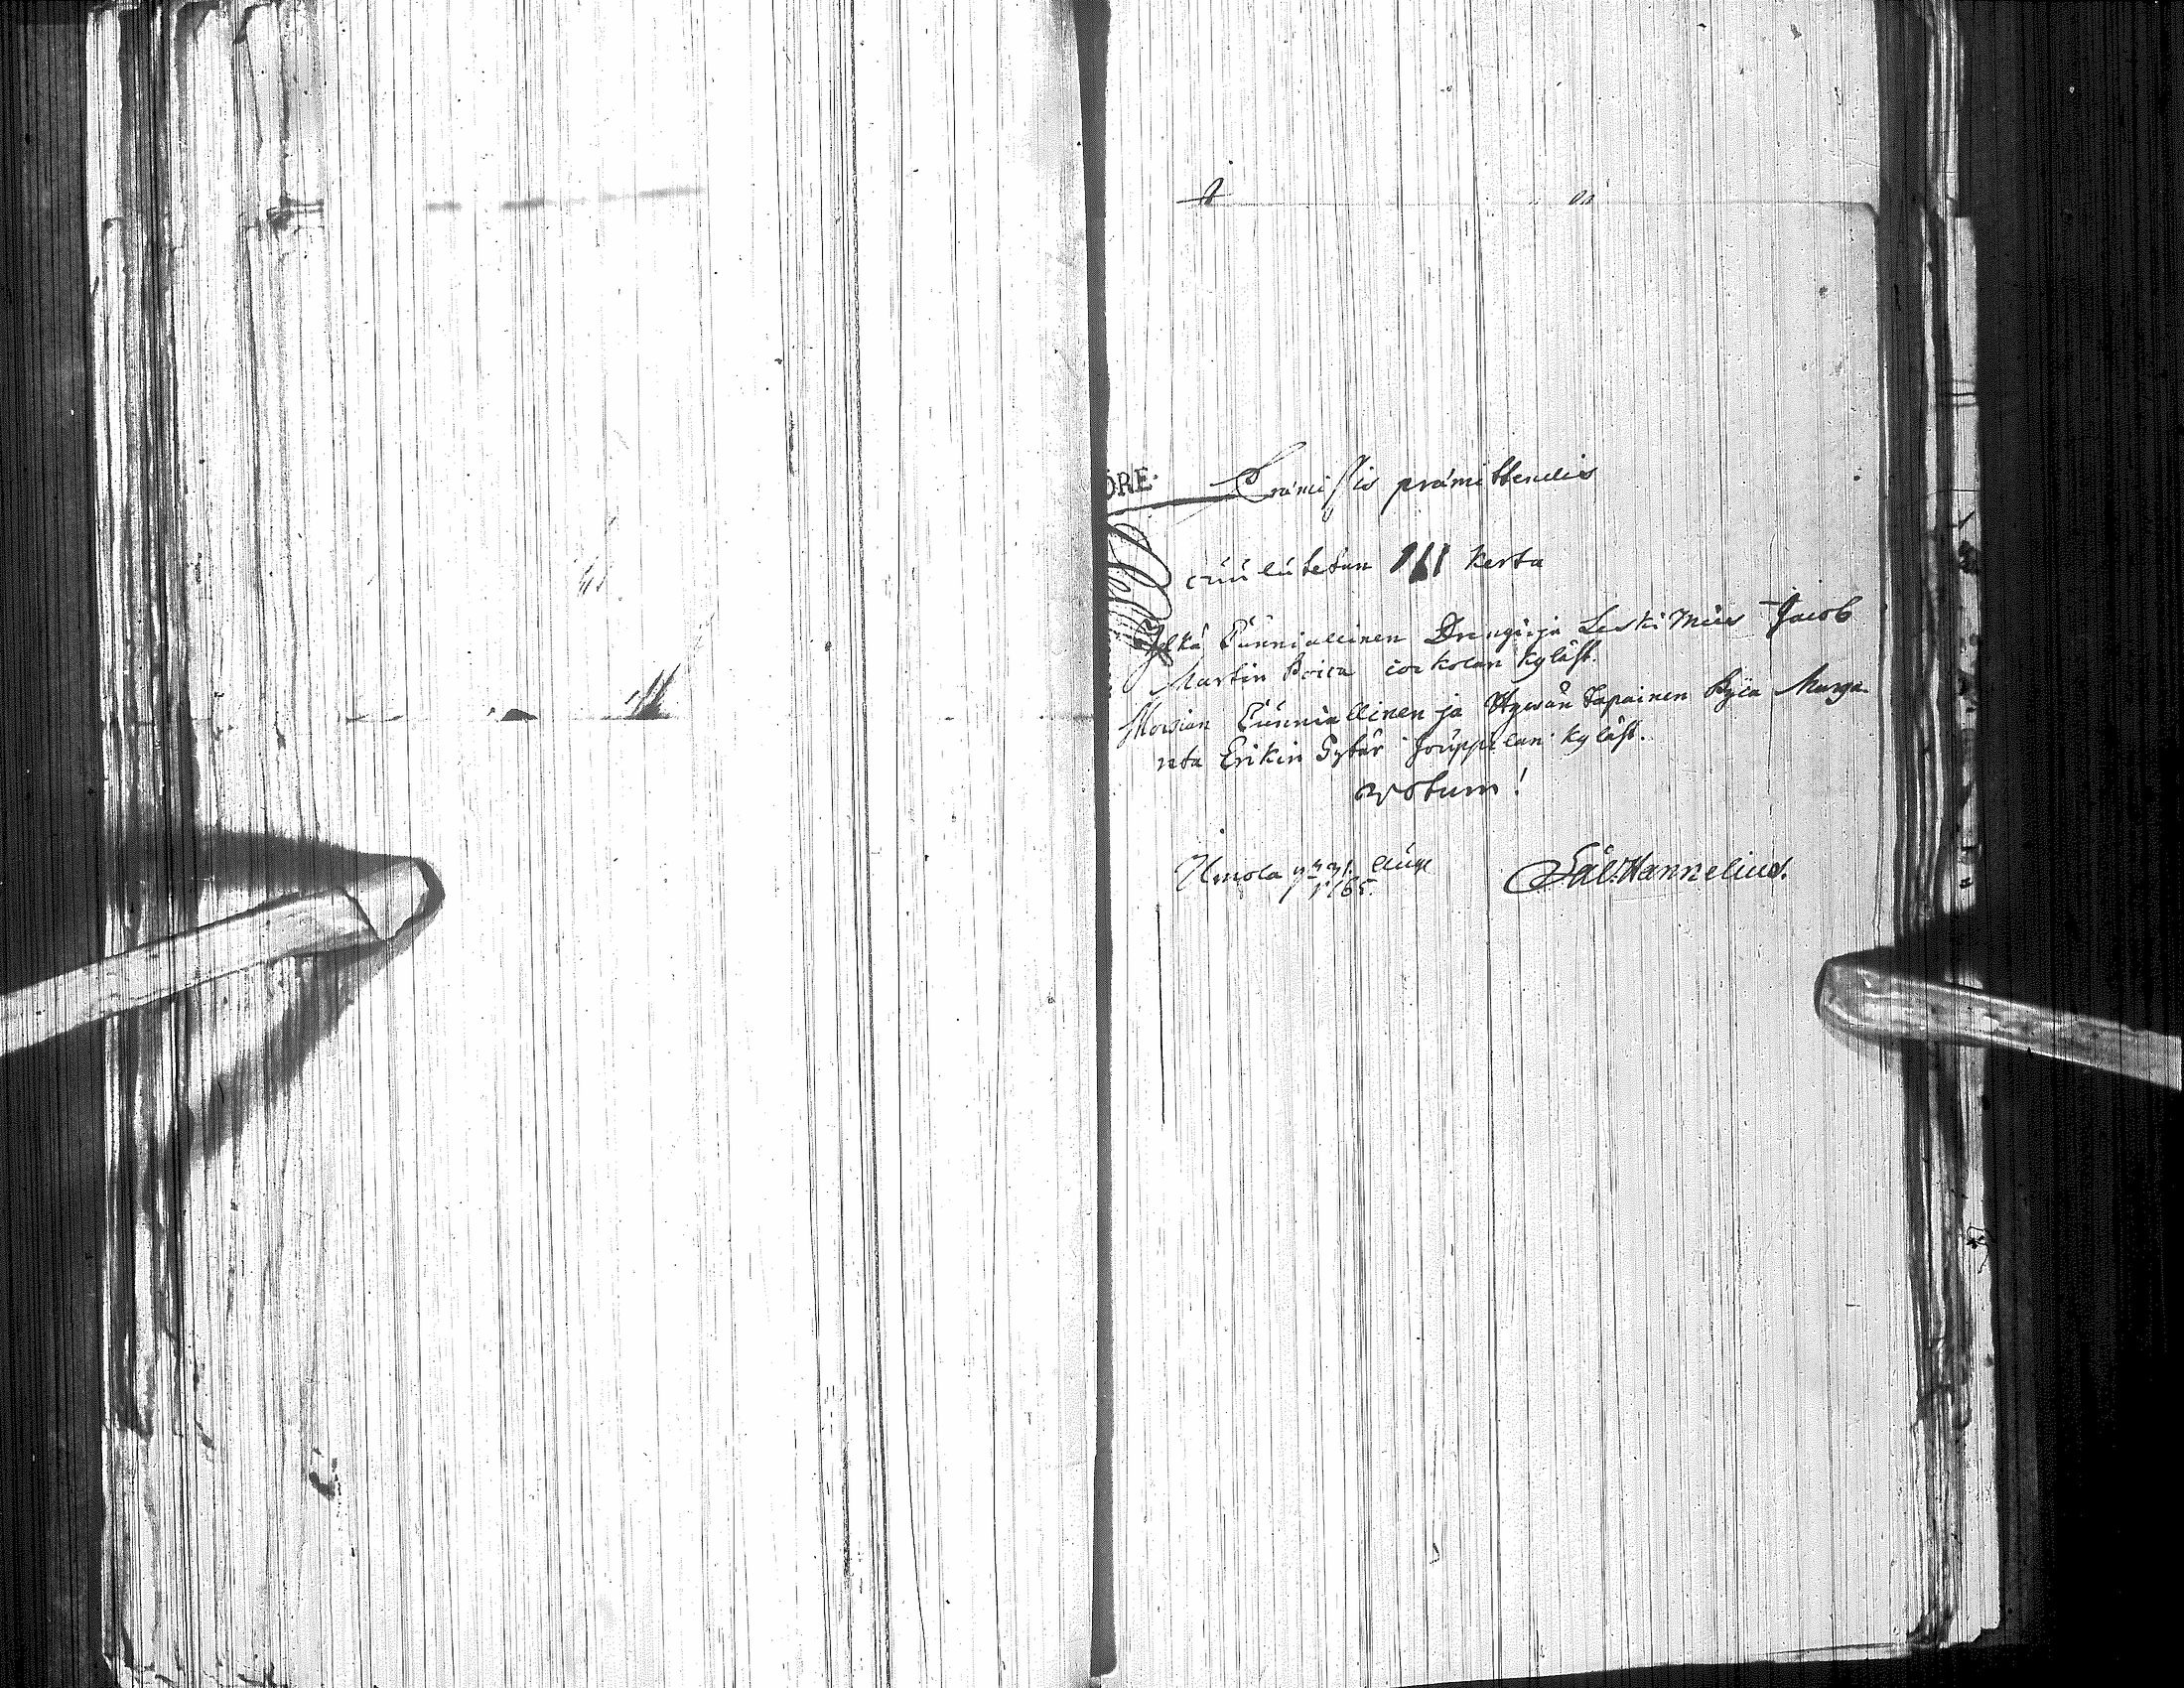 ÖRE.
Præmissis præmittendis
cuulutetan III kerta
Jlkä Cunniallinen Drengi ja Leski Mies Jacob
Martin Poica cockolan kyläst.
Morsian Cunniallinen ja Hywän Tapainen Pijca Marga-
reta Erikin Tytär Jouppilan kyläst.
votum!
Ilmola 31.
1765. Sal: Hannelius.